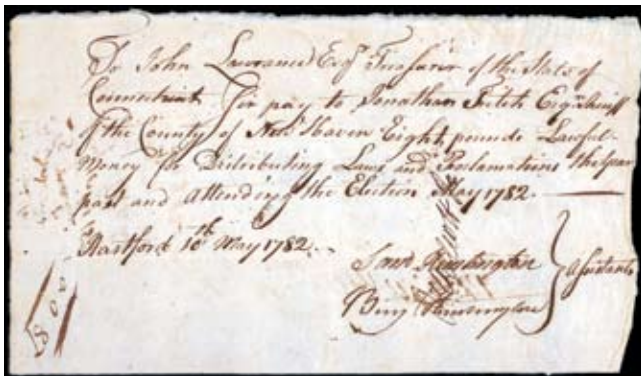 To John Lawrance Esqr Treasurer of the State of
Connecticut Sir pay to Jonathan Fitch Esqr Sheriff
of the County of New Haven Eight pounds Lawful
Money for Distributing Laws and Proclamations the year
past and Attending the Election May 1782.
Hartford 10th May 1782.
Saml Huntington
Benj Huntington
Assistants